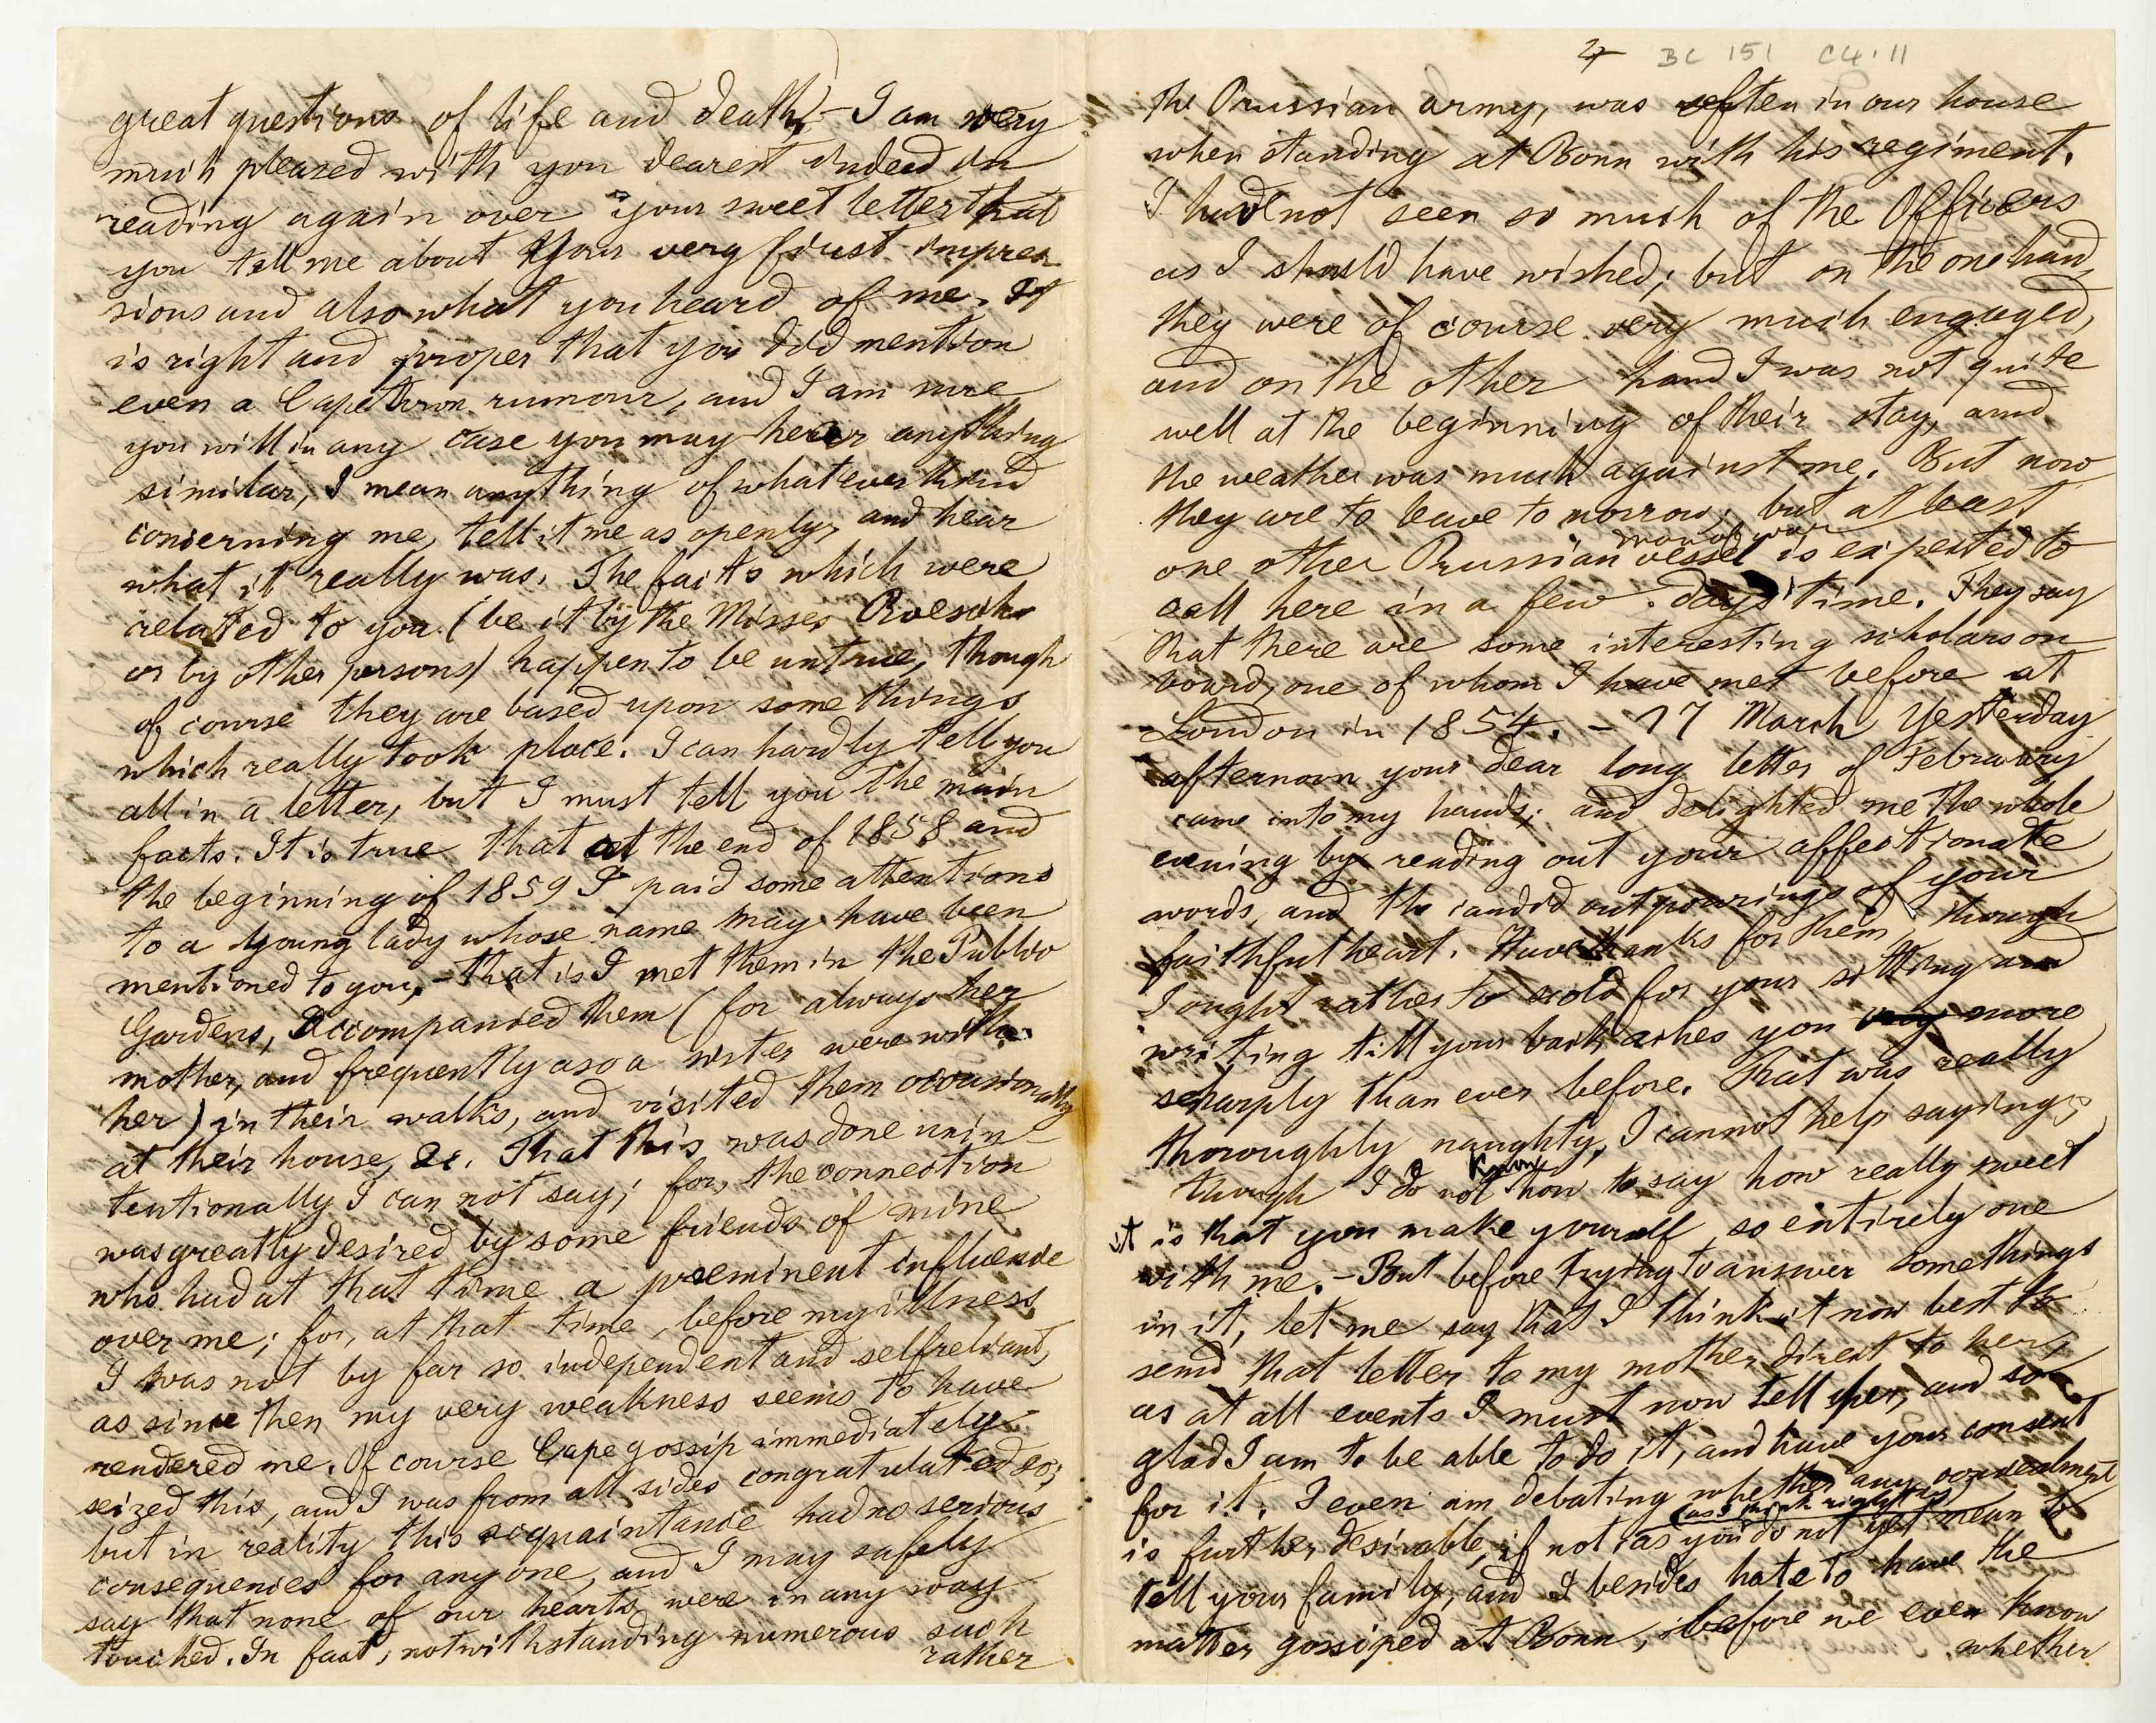 great questions of life and death. – I am very
much pleased with you dearest indeed in
reading again over your sweet letter that
you tell me about your very first impres
sions and also what you heard of me. It
is right and proper that you did mention
even a Capetown rumour, and I am sure
you will in any case you may hear anything
similar, I mean anything of whatever kind
concerning me, tell it me as openly, and hear
what it really was. The facts which were
related to you (be it by the Misses
or by other persons) happen to be untrue, though
of course they are based upon some things
which really took place. I can hardly tell you
all in a letter, but I must tell you the main
facts. It is true that at the end of 1858 and
the beginning of 1859 I paid some attentions
to a young lady whose name may have been
mentioned to you, – that is I met them in the Public
Gardens, accompanied them (for always her
mother, and frequently aso a sister were with
her) in their walks, and visited them occasionally
at their house, &c. That this was done unin
tentionally I can not say; for, the connection
was greatly desired by some friends of mine
who had at that time a preeminent influence
over me; for, at that time, before my illness,
I was not by far so independent and selfreliant,
as since then my very weakness seems to have
rendered me. Of course Cape gossip immediately
seized this, and I was from all sides congratulated so;
but in reality this acquaintance had no serious
consequences for any one, and I may safely
say that none of our hearts were in any way
touched. In fact, notwithstanding numerous such
rather
4 BC 151 C4.11
the Prussian army, was often in our house
when standing at Bonn with his regiment.
I have not seen so much of the Officers
as I should have wished; but on the one hand,
they were of course very much engaged,
and on the other hand I was not quite
well at the beginning of their stay, and
the weather was much against me. But now
they are to leave to morrow; but at least
man of war
one other Prussian vessel is expected to
call here in a few days' time. They say
that there are some interesting scholars on
board, one of whom I have met before at
London in 1854. – 17 March Yesterday
afternoon your dear long letter of February
came into my hands; and delighted me the whole
evening by reading out your affectionate
words, and the candid outpourings of your
faithful heart. Have thanks for them, though
I ought rather to scold for your sitting and
writing till your back aches you more
scharply than ever before. That was really
thoroughly naughty, I cannot help saying;
though I do not know how to say how really sweet
it is that you make yourself so entirely one
with me. – But before trying to answer somethings
in it, let me say that I think it now best to
send that letter to my mother direct to her,
as at all events I must now tell her, and so
glad I am to be able to do it, and have your consent
for it. I even am debating whether any concealment
(as I think rightly)
is further desirable, if not as you do not yet mean to
tell your family, and I besides hate to have the
matter gossiped at Bonn, before we even know
whether